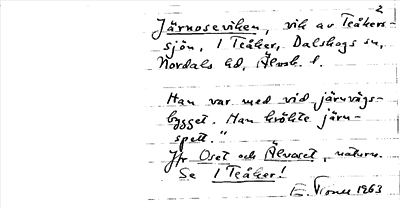 2
Järnoseviken, vik av Teåkers-
sjön, 1 Teåker, Dalskogs sn,
Nordals hd, Älvsb. l.
"Han var med vid järnvägs-
bygget. Han krökte järn-
spett."
Jfr Oset och Älvaset, naturn.
Se 1 Teåker!
E. 1963